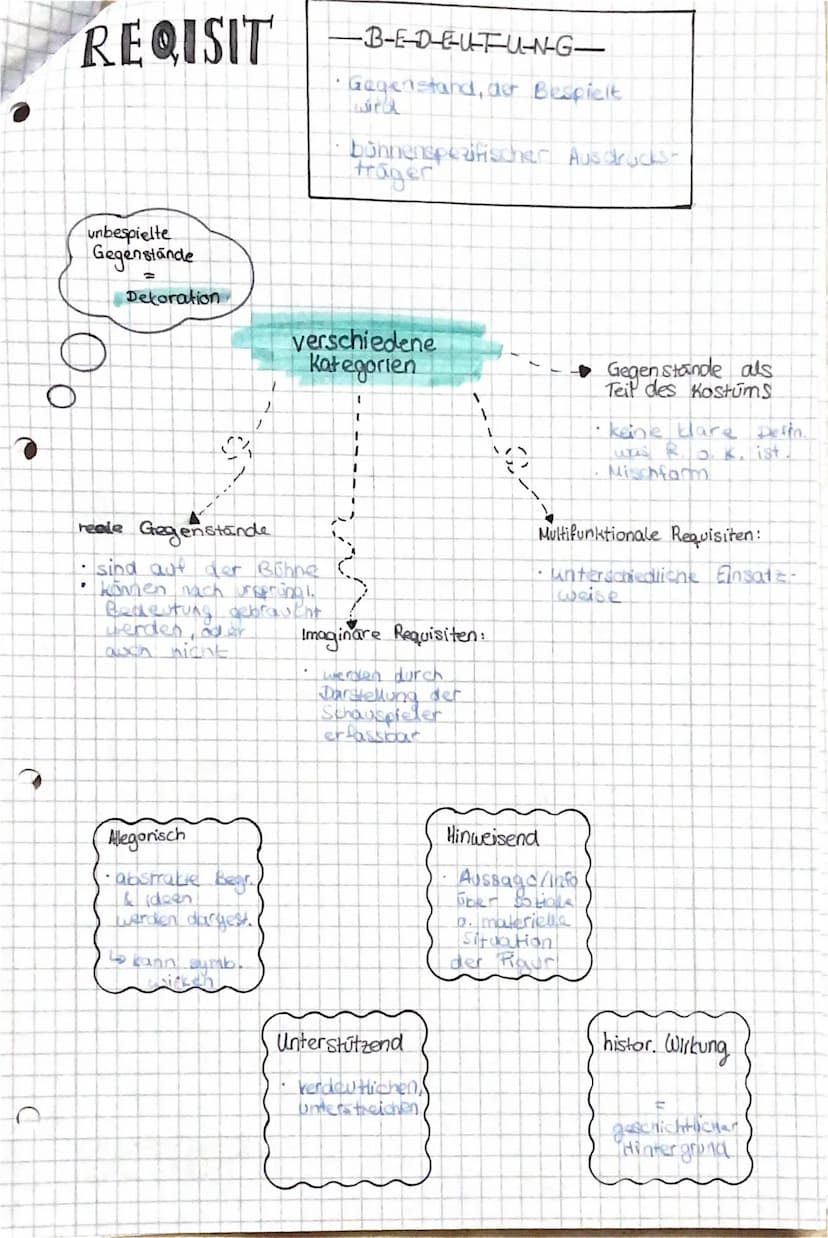 REQISIT
BEDEUTUNG
· Gegenstand, der Bespielt
wird
· bühnenspezifischer Ausdrucks-
träger
unbespielte
Gegenstände
=
Dekoration
verschiedene
Kategorien
Gegenstände als
Teil des Kostüms
· keine klare Defin.
was R. o. K. ist.
· Mischform
reale Gegenstände
· sind auf der Bühne
· können nach ursprüngl.
Bedeutung gebraucht
werden, oder
auch nicht
Multifunktionale Requisiten:
· unterschiedliche Einsatz-
weise
Imaginäre Requisiten:
· werden durch
Darstellung der
Schauspieler
erfassbar
Allegorisch
· abstrakte Begr.
& ideen
werden dargest.
↳ kann symb.
wirken
Hinweisend
· Aussage/Info
über soziale
o. materielle
Situation
der Figur
Unterstützend
· verdeutlichen,
unterstreichen
histor. Wirkung
=
geschichtlicher
Hintergrund